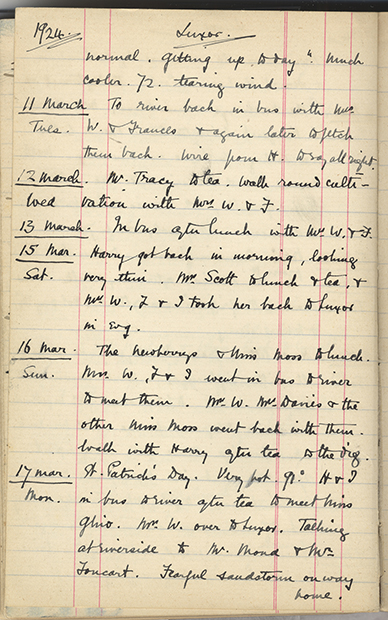 1924. Luxor.
normal. getting up to day". Much
cooler. 72. tearing wind.
11 March To river back in bus with Mrs
Tues. W. & Frances & again later to fetch
them back. Wire from H. to say all right.
12 March. Mr. Tracy to tea. Walk round culti-
Wed vation with Mrs W. & F.
13 March. In bus after lunch with Mrs W. & F.
15 Mar. Harry got back in morning, looking
Sat. very thin. Mrs Scott to lunch & tea, &
Mrs W., F & I took her back to Luxor
in Evg.
16 Mar. The Newberrys & Miss Moss to lunch.
Sun. Mrs. W., F & I went in bus to river
to meet them. Mrs W. Mrs Davies & the
other Miss Moss went back with them.
Walk with Harry after tea to the dig.
17 Mar. St. Patrick's Day. Very hot 91° H & I
Mon. in bus to river after tea to meet Miss
Ghio. Mrs. W. over to Luxor. Talking
at riverside to Mr. Mond & Mr
Foucart. Fearful sandstorm on way
home.